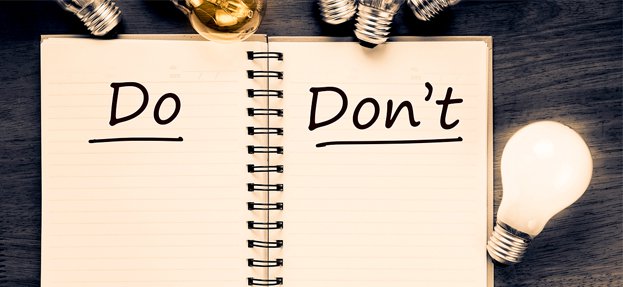 Do
Don't